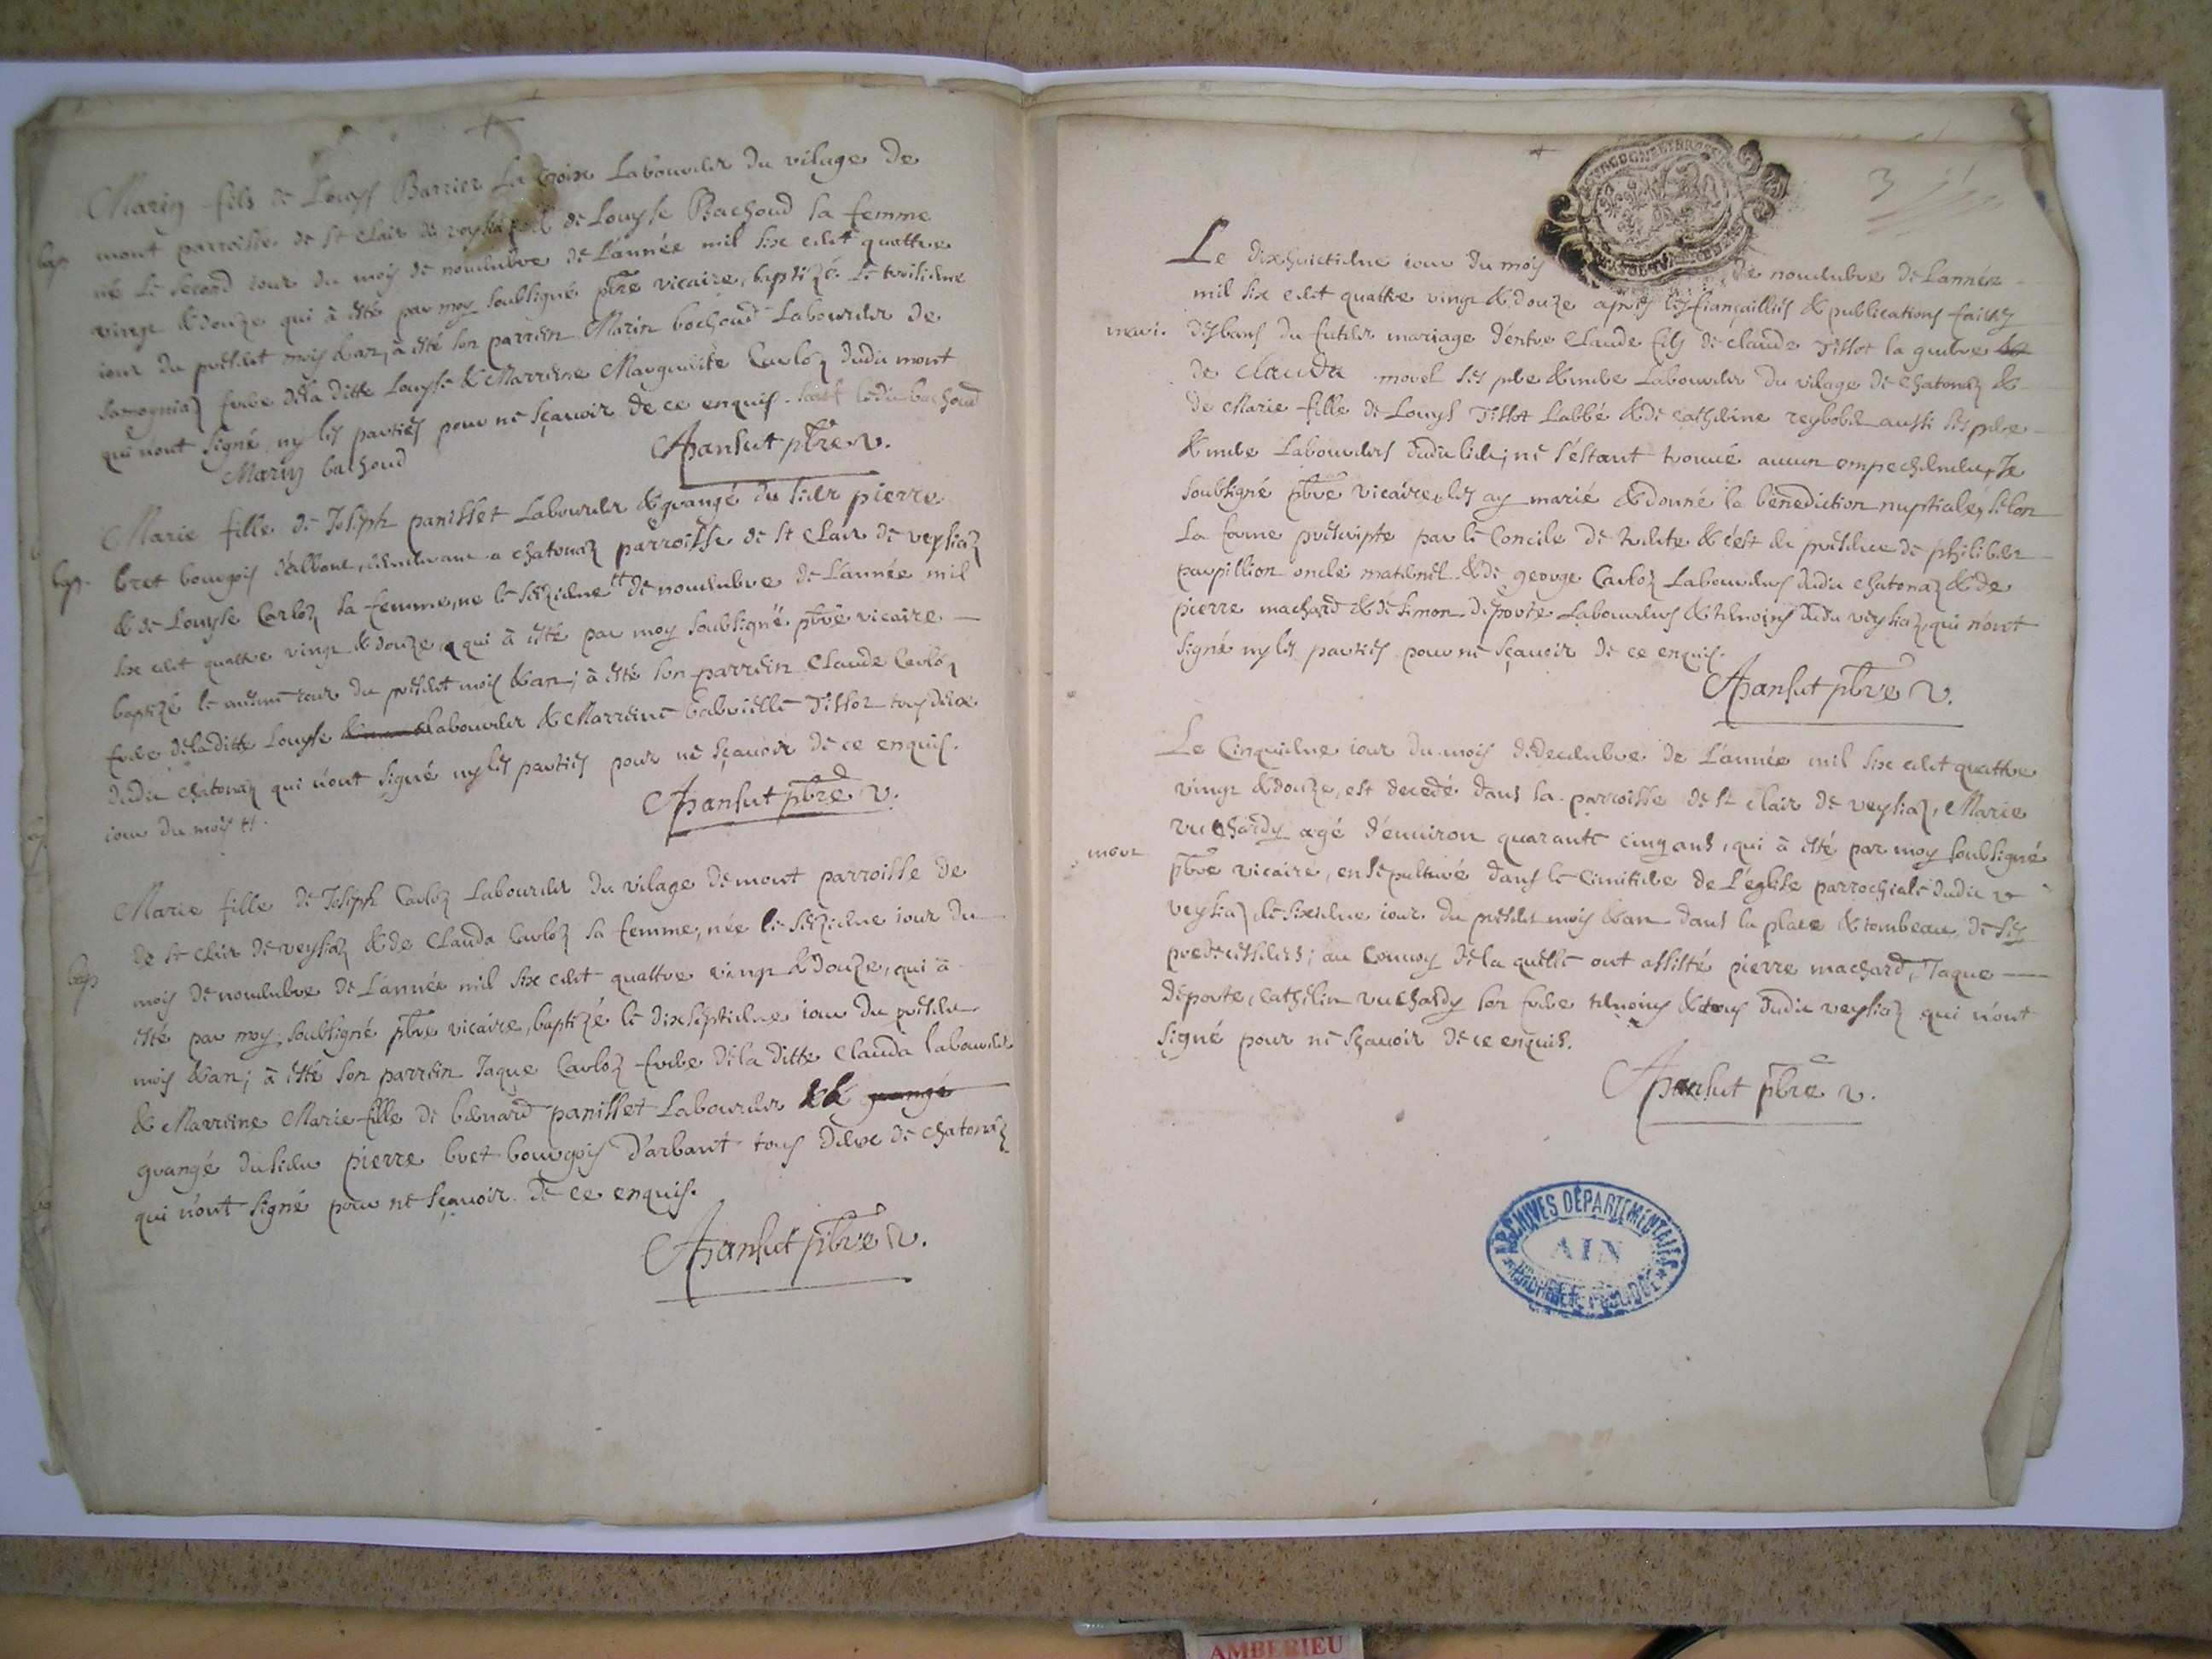 Marin fils de Louys Barrier La Croix Laboureur du vilage de
bap mont parroisse de st Clair de veysia & de Louyse Bachoud sa femme
né le second iour du mois de nouembre de L'année mil six cent quattre
vingt & douze qui à esté par moy soubsigné pbre vicaire, baptizé le troisieme
iour du present mois & an, à esté son parrein Marin bochoud Laboureur de
Samogniaz frere dela ditte Louyse & Marreine Marguerite Carloz dudit mont
qui n'ont signé ny les parties pour ne sçauoir de ce enquis. sauf ledit bachoud
Marin bachoud
pbre v.
Marie fille de Joseph panisset Laboureur & grangé du sieur pierre
bap. bret bourgois d'Albant, demeurant a chatonaz parroisse de st Clair de veysiaz
& de Louyse Carloz sa femme, ne le sezieme tt de nouembre de L'année mil
six cent quattre vingt & douze, qui à esté par moy soubsigné pbre vicaire
baptizé le mesme iour du present mois & an; à esté son parrein Claude Carloz
frere dela ditte Louyse Laboureur & Marreine Gabrielle Tissot tous deux
dudit chatonaz qui n'ont signé ny les parties pour ne sçauoir de ce enquis.
iour du mois tt.
pbre v.
Marie fille de Joseph Carloz Laboureur du vilage de mont parroisse de
bap de st Clair de veysiaz & de Clauda Carloz sa femme, née le sezieme iour du
mois de nouembre de L'année mil six cent quattre vingt & douze, qui à
esté par moy soubsigné pbre vicaire, baptizé le dixseptieme iour du present
mois & an; à esté son parrein Jaque Carloz frere dela ditte Clauda laboureur
& Marreine Marie fille de benard panisset Laboureur & grangé
grangé du sieur pierre bret bourgois d'arbant tous deux de chatonaz
qui n'ont signé pour ne sçauoir de ce enquis.
pbre v.
3
Le dixhuictieme iour du mois de nouembre de L'année
mil six cent quattre vingt & douze apres les fiançailles & publications faites
mari. des bans du futeur mariage d'entre Claude fils de claude Tissot la guebre
de Clauda morel ses pere & mere Laboureur du vilage de Chatonaz &
de Marie fille de Louys Tissot Labbé & de Catherine reybobe aussi ses pere
& mere Laboureurs dudit lieu; ne s'estant trouué aucun empechement, Je
soubsigné pbre vicaire les ay marié & donné la benediction nuptiale, selon
La forme prescripte par le Concile de trente & c'est en presence de philibert
parpillion oncle maternel & de george Carloz Laboureurs dudit chatonaz & de
pierre machard & de simon deporte Laboureurs & temoins dudit veysiaz, qui n'ont
signé ny les parties pour ne sçauoir de ce enquis.
pbre v.
Le Cinquieme iour du mois de decembre de L'année mil six cent quattre
vingt & douze, est decedé dans la parroisse de st clair de veysiaz, Marie
mort vuchardy agé d'enuiron quarante cinq ans, qui à esté par moy soubsigné
pbre vicaire, ensepulturé dans le Cimitiere de L'eglise parrochiale dudit v
veysiaz le sixieme iour du present mois & an dans la place & tombeau de ses
predecesseurs; au conuoy dela quelle ont assisté pierre machard, Jaque
deporte, Cathelin vuchardy son frere temoins & tous dudit veysiaz qui n'ont
signé pour ne sçauoir de ce enquis.
pbre v.
ARCHIVES DÉPARTEMENTALES
AIN
AMBERIEU